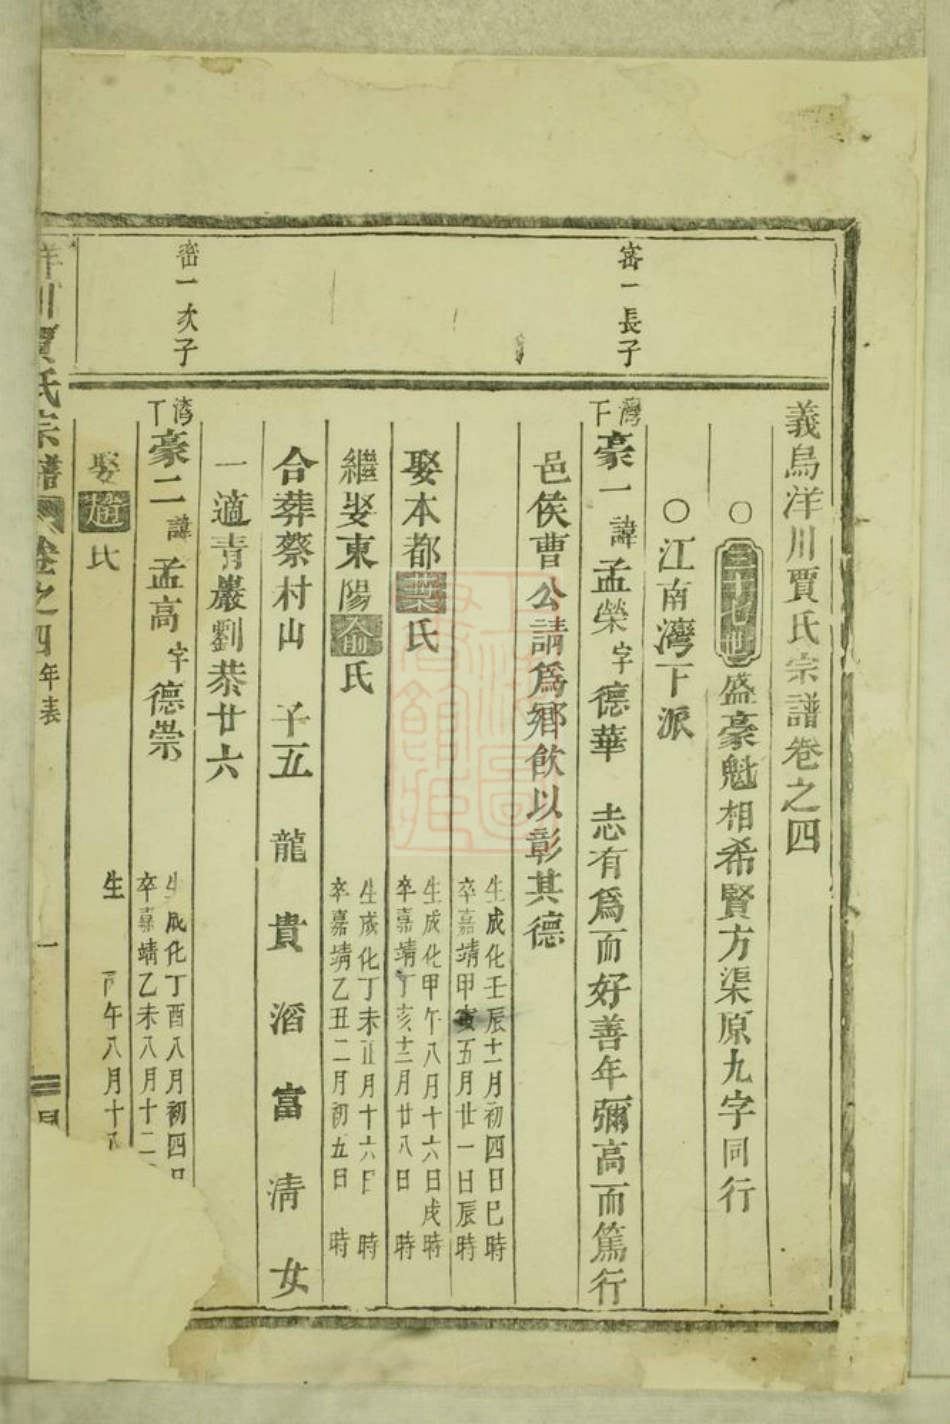 義烏洋川賈氏宗譜卷之四
○盛豪魁相希賢方渠原九字同行
○江南灣下派
密一長子
灣下
豪一諱孟榮字德華 志有爲而好善年彌高而篤行
邑侯曹公請爲鄉飲以彰其德
生成化壬辰十二月初四日巳時
卒嘉靖甲寅五月廿一日辰時
娶本都葉氏
生成化甲午八月十六日戌時
卒嘉靖丁亥十二月廿八日 時
繼娶東陽俞氏
生成化丁未正月十六日 時
卒嘉靖乙丑二月初五日 時
合葬蔡村山 子五 龍 貴 滔 富 清 女
一適青巖劉恭廿六
密一次子
湾丁
豪二諱孟高字德崇
生成化丁酉八月初四日
卒嘉靖乙未八月十二
娶氏
生 丙午八月十
洋川賈氏宗譜 卷之四 年表 一